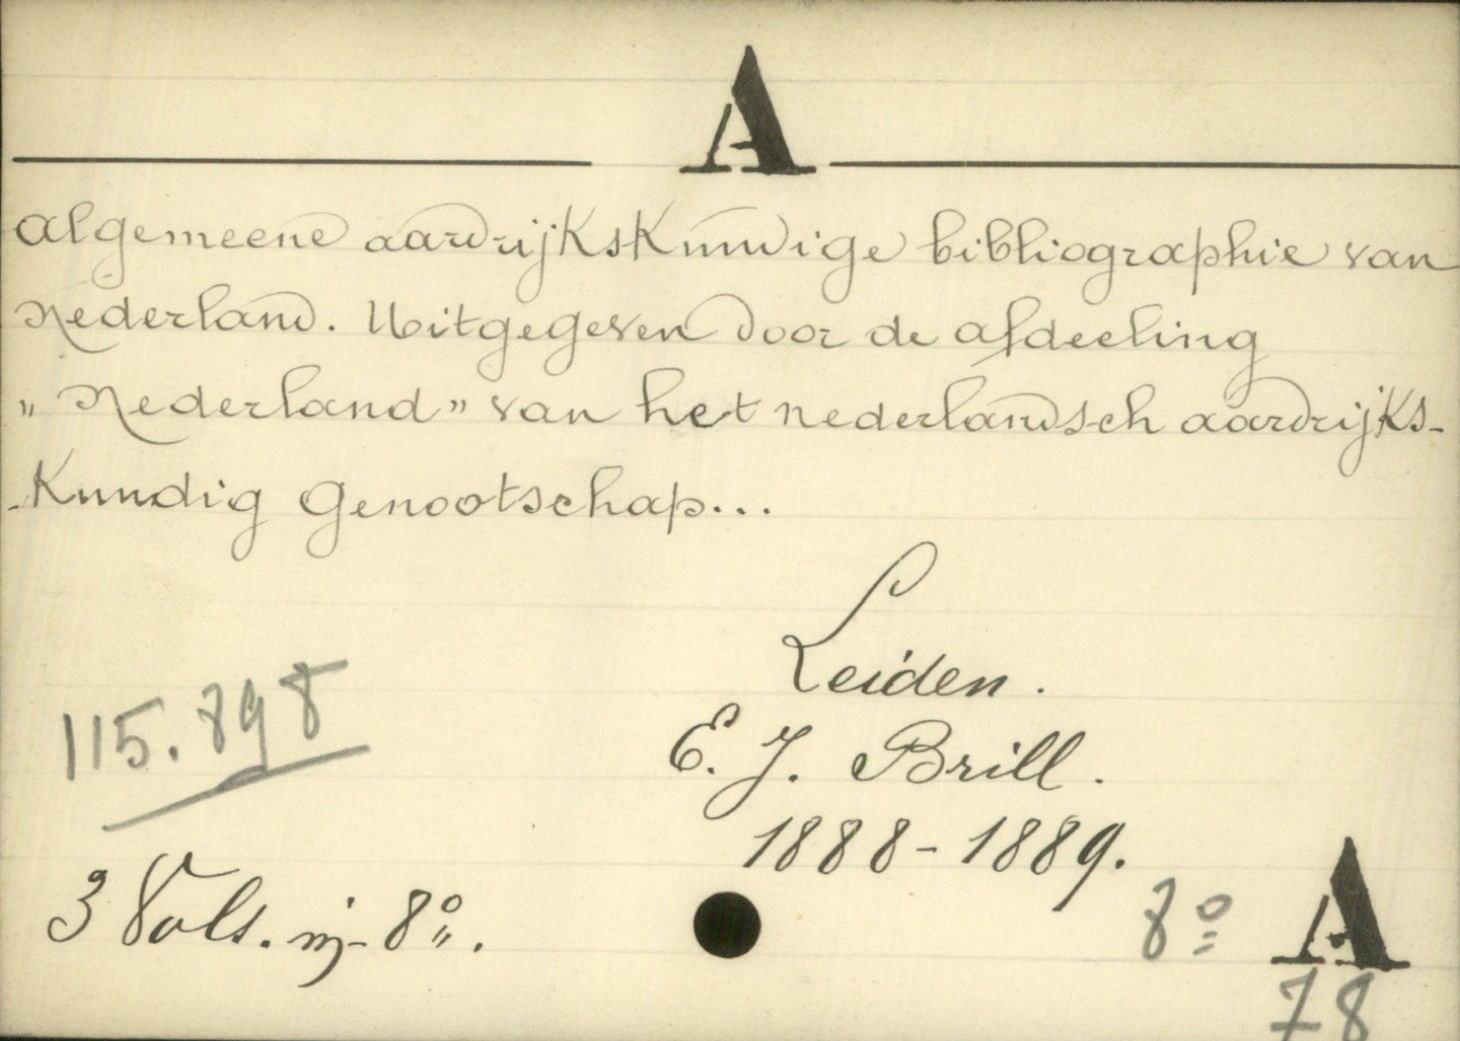 A
Algemeene aardrijkskundige bibliographie van
Nederland. Uitgegeven door de afdeeling
„Nederland” van het nederlandsch aardrijks-
-kundig Genootschap...
Leiden.
115.898
E. J. Brill.
1888-1889.
3 Vols. in-8º.
8º A
78